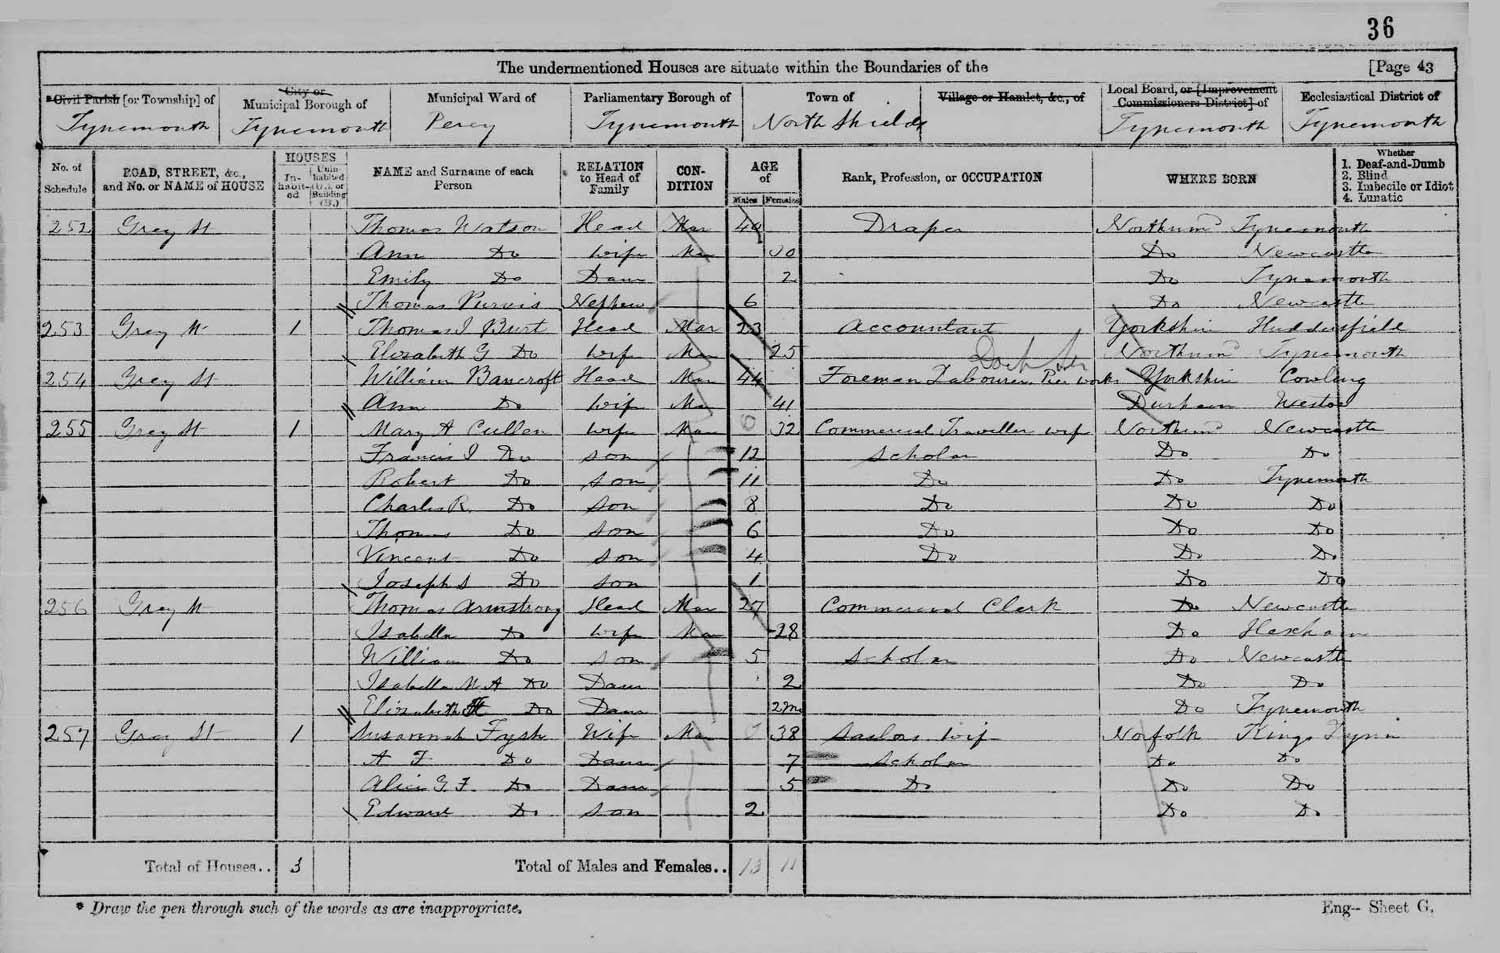 36
The undermentioned Houses are situate within the Boundaries of the [Page 43
*Civil Parish [or Township] of City or Municipal Borough of Municipal Ward of Parliamentary Borough of Town of Village or Hamlet, &c., of Local Board, or [Improvement Commissioners District] of Ecclesiastical District of
Tynemouth Tynemouth Percy Tynemouth North Shields Tynemouth Tynemouth
No. of Schedule ROAD, STREET, &c., and No. or NAME of HOUSE HOUSES Inhabited Uninhabited (U.), or Building (B.) NAME and Surname of each Person RELATION to Head of Family CONDITION AGE of Males Females Rank, Profession, or OCCUPATION WHERE BORN Whether 1. Deaf-and-Dumb 2. Blind 3. Imbecile or Idiot 4. Lunatic
252 Grey St Thomas Watson Head Mar 40 Draper Northumd Tynemouth
Ann Do Wife Mar Do Newcastle
Emily Do Daur 2 Do Tynemouth
Thomas Purvis Nephew 6 Do Newcastle
253 Grey St 1 Thomas J Burt Head Mar 23 Accountant Yorkshire Huddersfield
Elizabeth G Do Wife Mar 25 Northumd Tynemouth
254 Grey St William Bancroft Head Mar 44 Foreman Labourer Pier Works Yorkshire Cowling
Ann Do Wife Mar 41 Durham Westoe
255 Grey St 1 Mary A Cullen Wife Mar 32 Commercial Traveller wife Northumd Newcastle
Francis J Do Son 12 Scholar Do Do
Robert Do Son 11 Do Do Tynemouth
Charles R. Do Son 8 Do Do Do
Thomas Do Son 6 Do Do Do
Vincent Do Son 4 Do Do Do
Joseph S Do Son 1 Do Do
256 Grey St Thomas Armstrong Head Mar 27 Commercial Clerk Do Newcastle
Isabella Do Wife Mar 28 Do Hexham
William Do Son 5 Scholar Do Newcastle
Isabella M A Do Daur 2 Do Do
Elizabeth H Do Daur 2m Do Tynemouth
257 Grey St 1 Susannah Fysh Wife Mar 38 Sailors wife Norfolk Kings Lynn
A F Do Daur 7 Scholar Do Do
Alice G. F. Do Daur 5 Do Do Do
Edward Do Son 2 Do Do
Total of Houses.. 3 Total of Males and Females.. 13 11
* Draw the pen through such of the words as are inappropriate. Eng-- Sheet G.